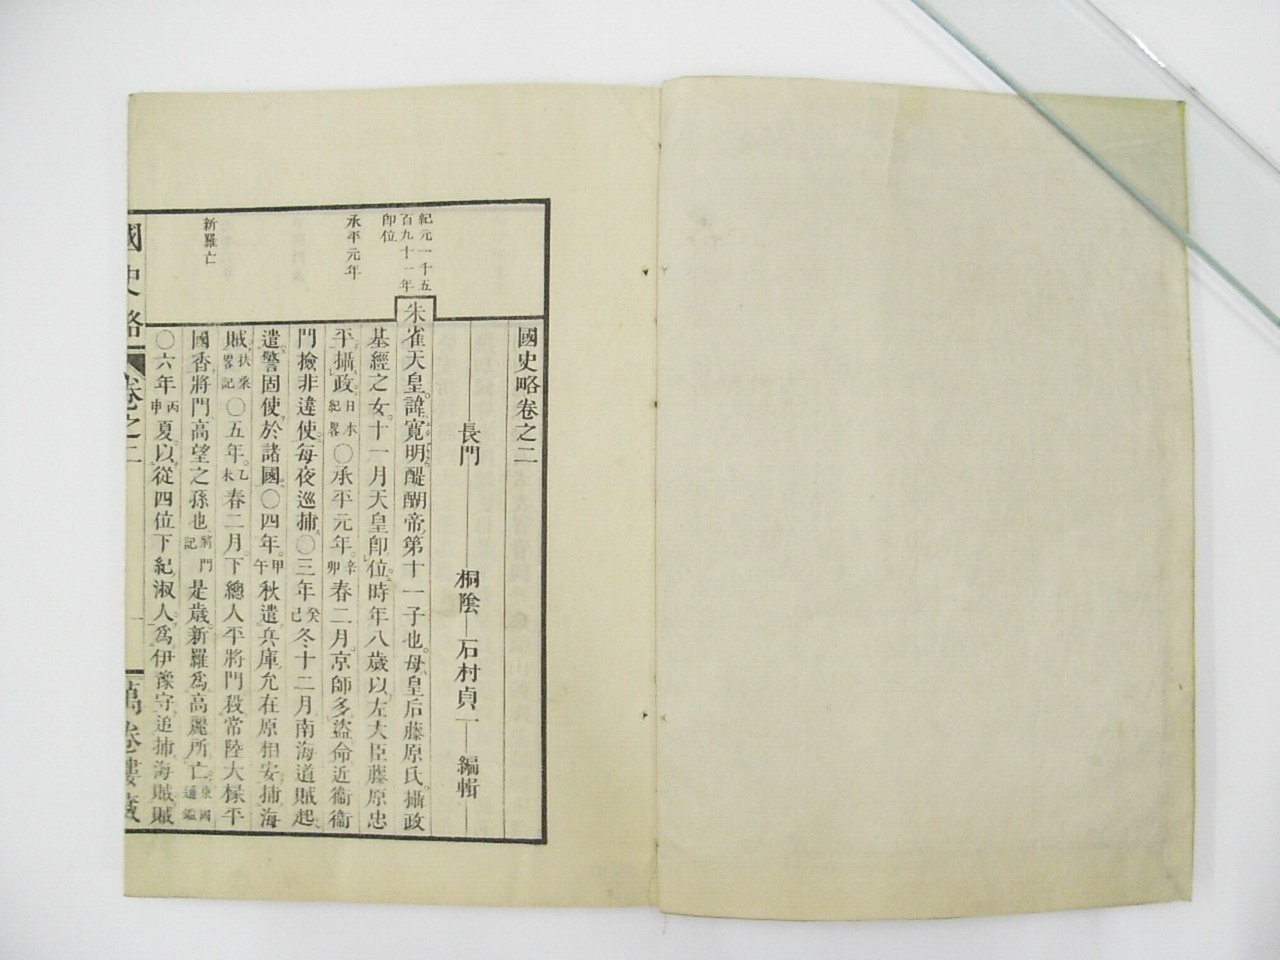 國史略卷之二
長門 桐陰 石村貞一 編輯
紀元一千五
百九十一年
即位
朱雀天皇。諱寬明。醍醐帝第十一子也。母皇后藤原氏。攝政
基經之女。十一月天皇即位。時年八歲。以左大臣藤原忠
承平元年
平攝政。日本紀畧〇承平元年。辛卯春二月。京師多盜。命近衞衞
門撿非違使。每夜巡捕。〇三年癸巳冬十二月。南海道賊起。
遣警固使於諸國。〇四年。甲午秋遣兵庫允在原相安。捕海
賊。扶桑畧記〇五年。乙未春二月。下總人平將門。殺常陸大椽平
新羅亡
國香。將門。高望之孫也。將門記是歲。新羅爲高麗所亡。東國通鑑
〇六年丙申夏。以從四位下紀淑人。爲伊豫守。追捕海賊。賊
國史略 卷之二 一 萬卷樓藏